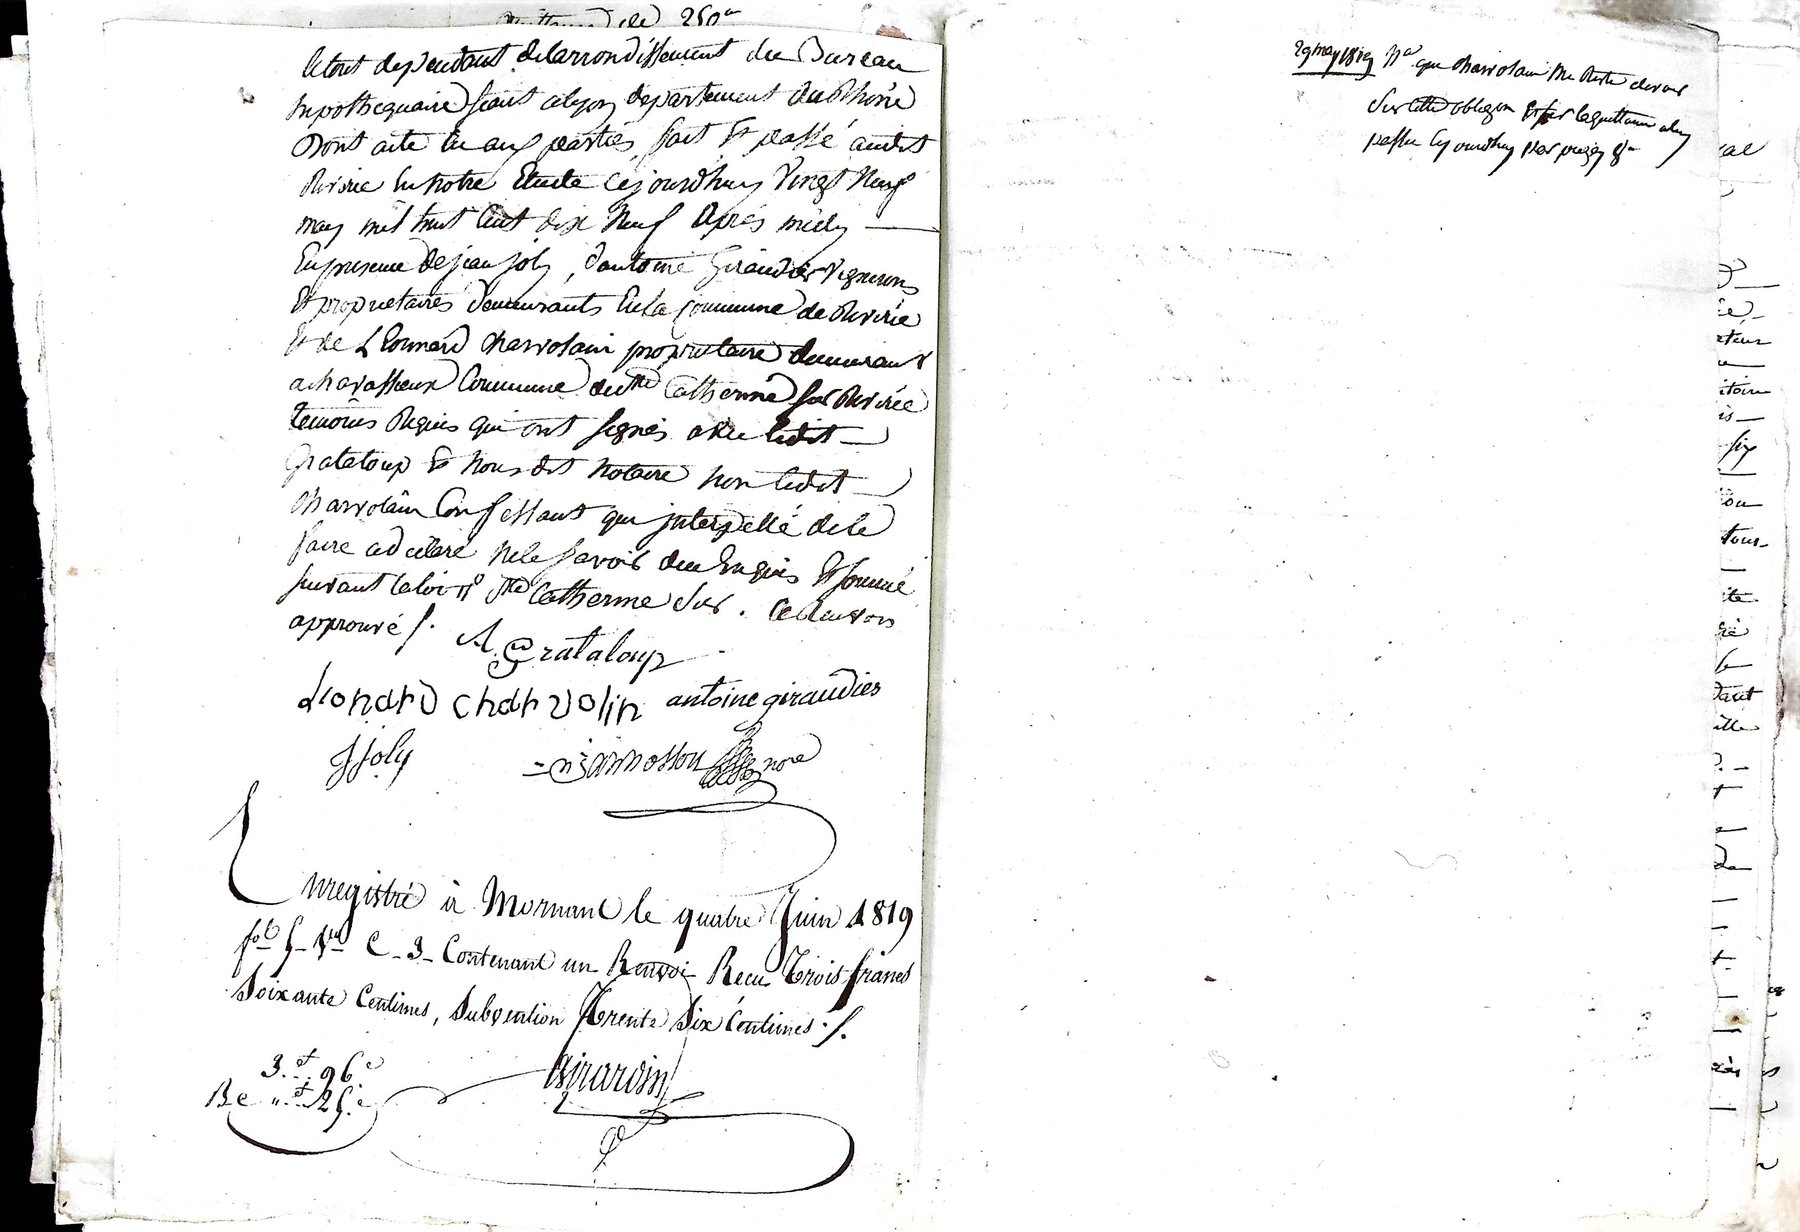 quittance de 250
le tout dependant delarrondissement du Bureau
hypothequaire seant alyon departement du Rhône
Dont acte lu aux parties, fait Et passé audit
Riverie En notre Etude cejourdhuy vingt Neuf
may mil huit Cent dix Neuf après midy
En presence de jean joly, dantoine Giraudier vignerons
Et proprietaires demeurants En la Commune de Riverie
Et de Leonnard Charvolain proprietaire demeurant
a Commune de Ste Catherine sur Riverie
temoins Requis qui ont signés avec ledit
Grataloup Et Nous dit Notaire non ledit
Charvolain Confessant qui interpellé dele
faire adeclaré Nele savoir deu Enquis Et sommé
suivant laloi Ste Catherine sur . le Renvois
approuvé
A. Grataloup
Lonard charvolin antoine giraudier
J Joly nore
Enregistré à Mornant le quatre Juin 1819
fol 5 Vo C. 3 Contenant un Renvoi Recu Trois francs
Soixante Centimes, Subvention Trente Six Centimes
3. 96 c
Girardin
Be 25 c
29 may 1819 No que Charvolain Me Reste devoir
Sur cette obligon Et par la quittance aluy
passée Cy